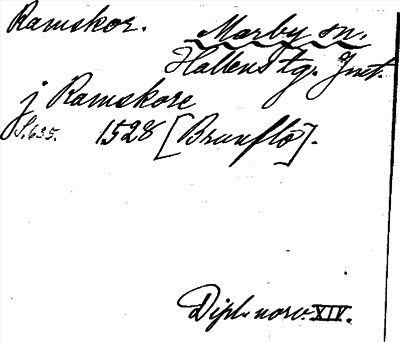 Ramskor.
Marby sn.
Hallens tg. Jmt.
j Ramskore
S. 635. 1528 [Brunflo].
Dipl. norv. XIV.